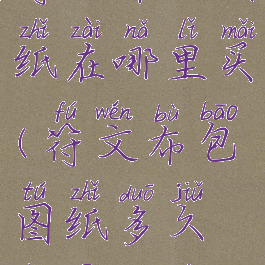 zhǐ zài nǎ lǐ mǎi
纸在哪里买
fú wén bù bāo
(符文布包
tú zhǐ duō jiǔ
图纸多久